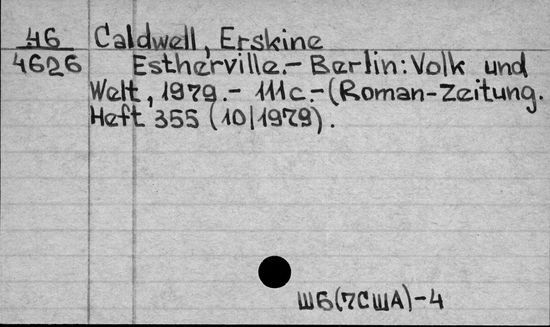 46 Caldwell, Erskine
4626 Estherville.- Berlin: Volk und
Welt, 1979.- 111c.-(Roman-Zeitung.
Heft 355 (10/1979).
Ш6(7США)-4